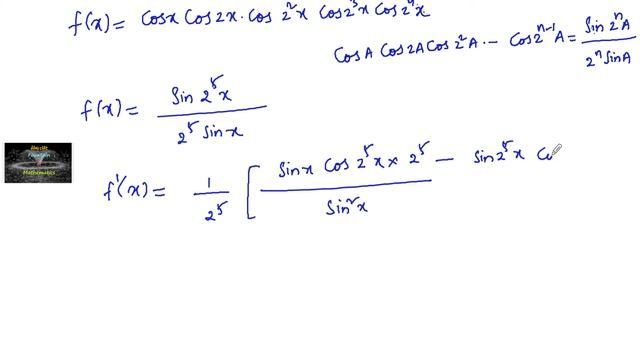 f(x) = Cosx Cos2x · Cos 2²x Cos2³x Cos2⁴x
CosA Cos2A Cos2²A --- Cos2ⁿ⁻¹A = Sin2ⁿA / 2ⁿSinA
f(x) = Sin2⁵x / 2⁵Sinx
Fountain
Mathematics
f'(x) = 1/2⁵ [ Sinx Cos2⁵x × 2⁵ − Sin2⁵x C / Sin²x